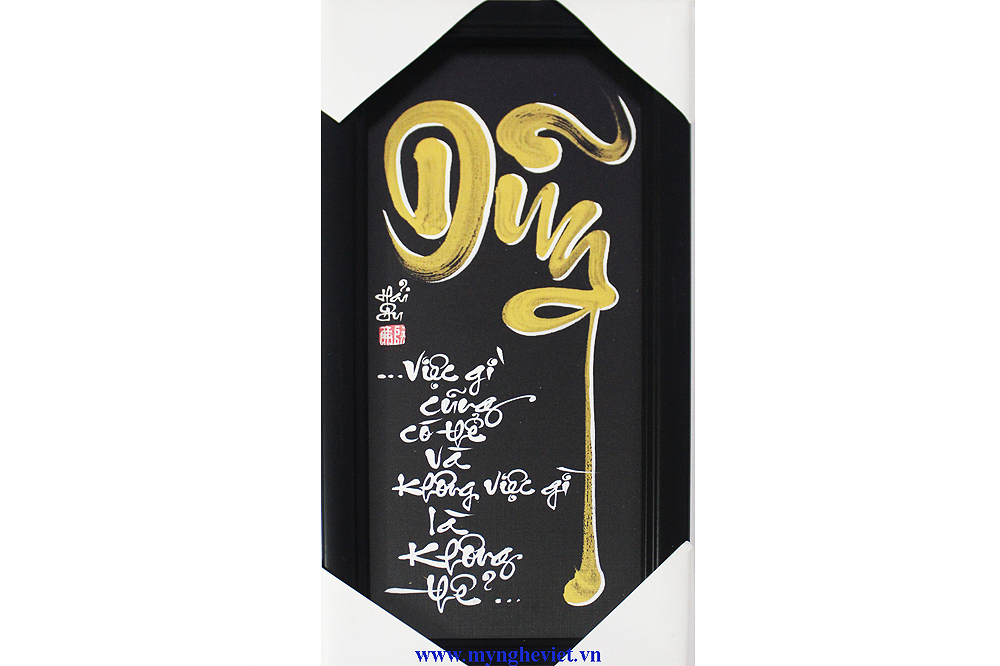 Dũng
Hải
...việc gì
cũng
có thể
và
không việc gì
là
không
thể...
www.myngheviet.vn